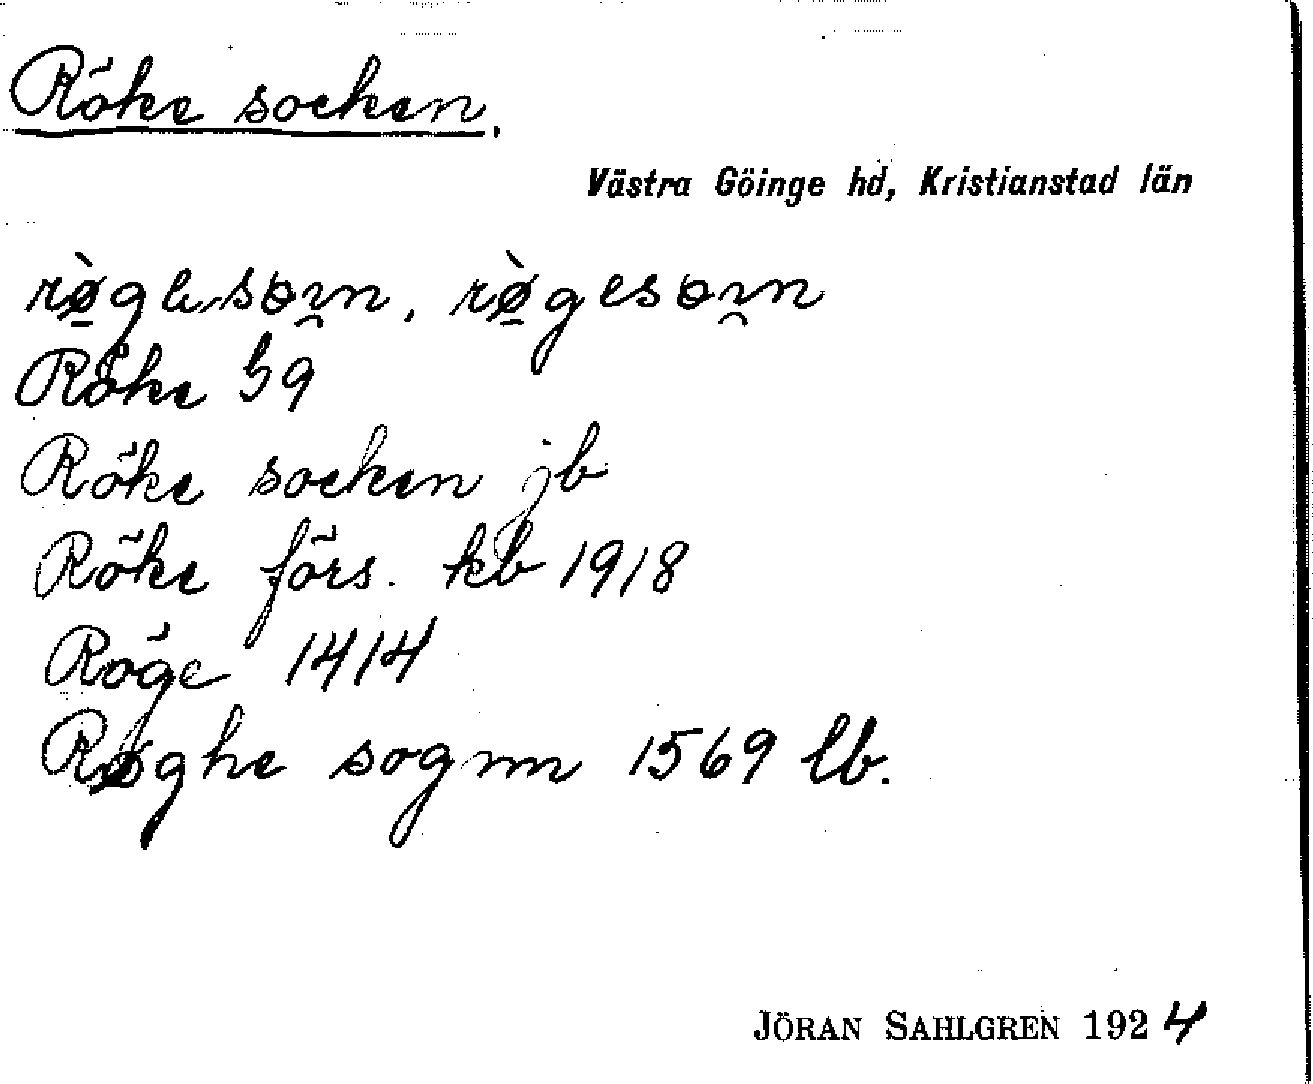 Röke socken.
Västra Göinge hd, Kristianstad län
rø̀gesoın, rø̀gesoın
Röke G9
Röke socken jb
Röke förs. kb 1918
Röge 1414
Røghe sognn 1569 lb.
JÖRAN SAHLGREN 1924